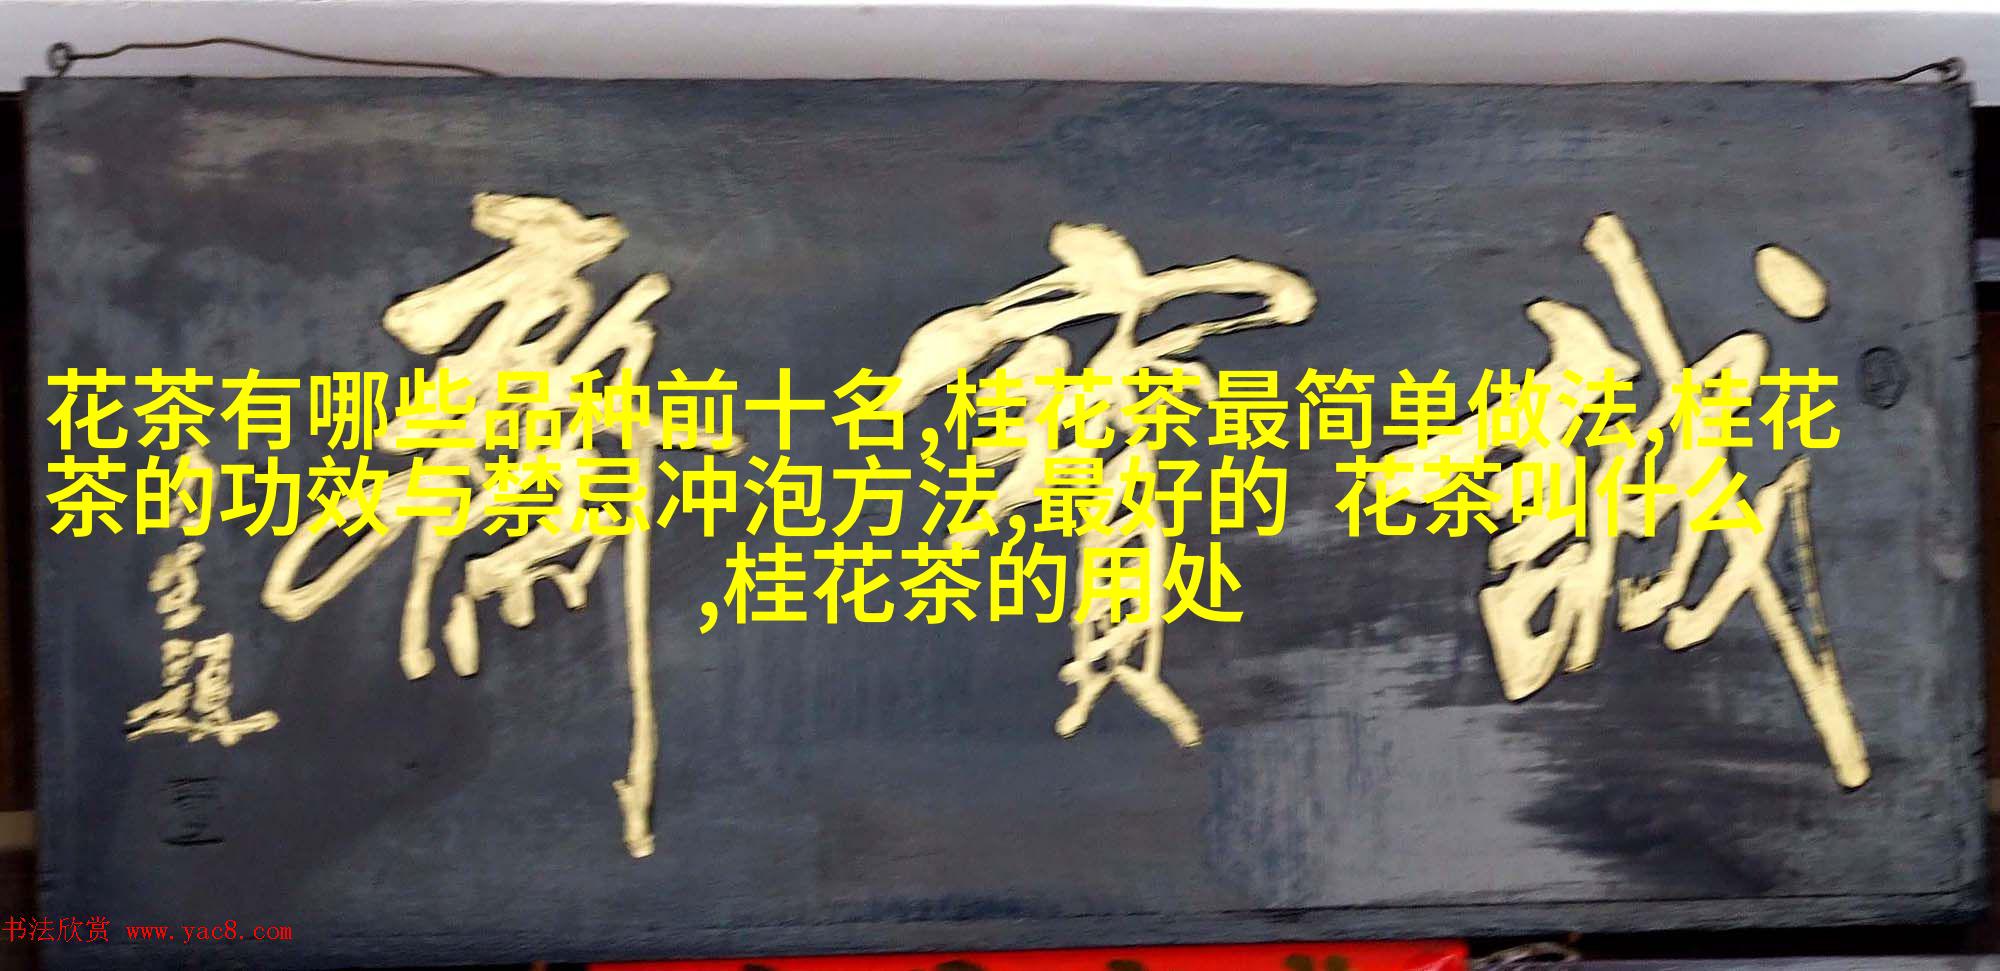 誠寶齋
花茶有哪些品种前十名,桂花茶最简单做法,桂花
茶的功效与禁忌冲泡方法,最好的 花茶叫什么
,桂花茶的用处
书法欣赏 www.yac8.com